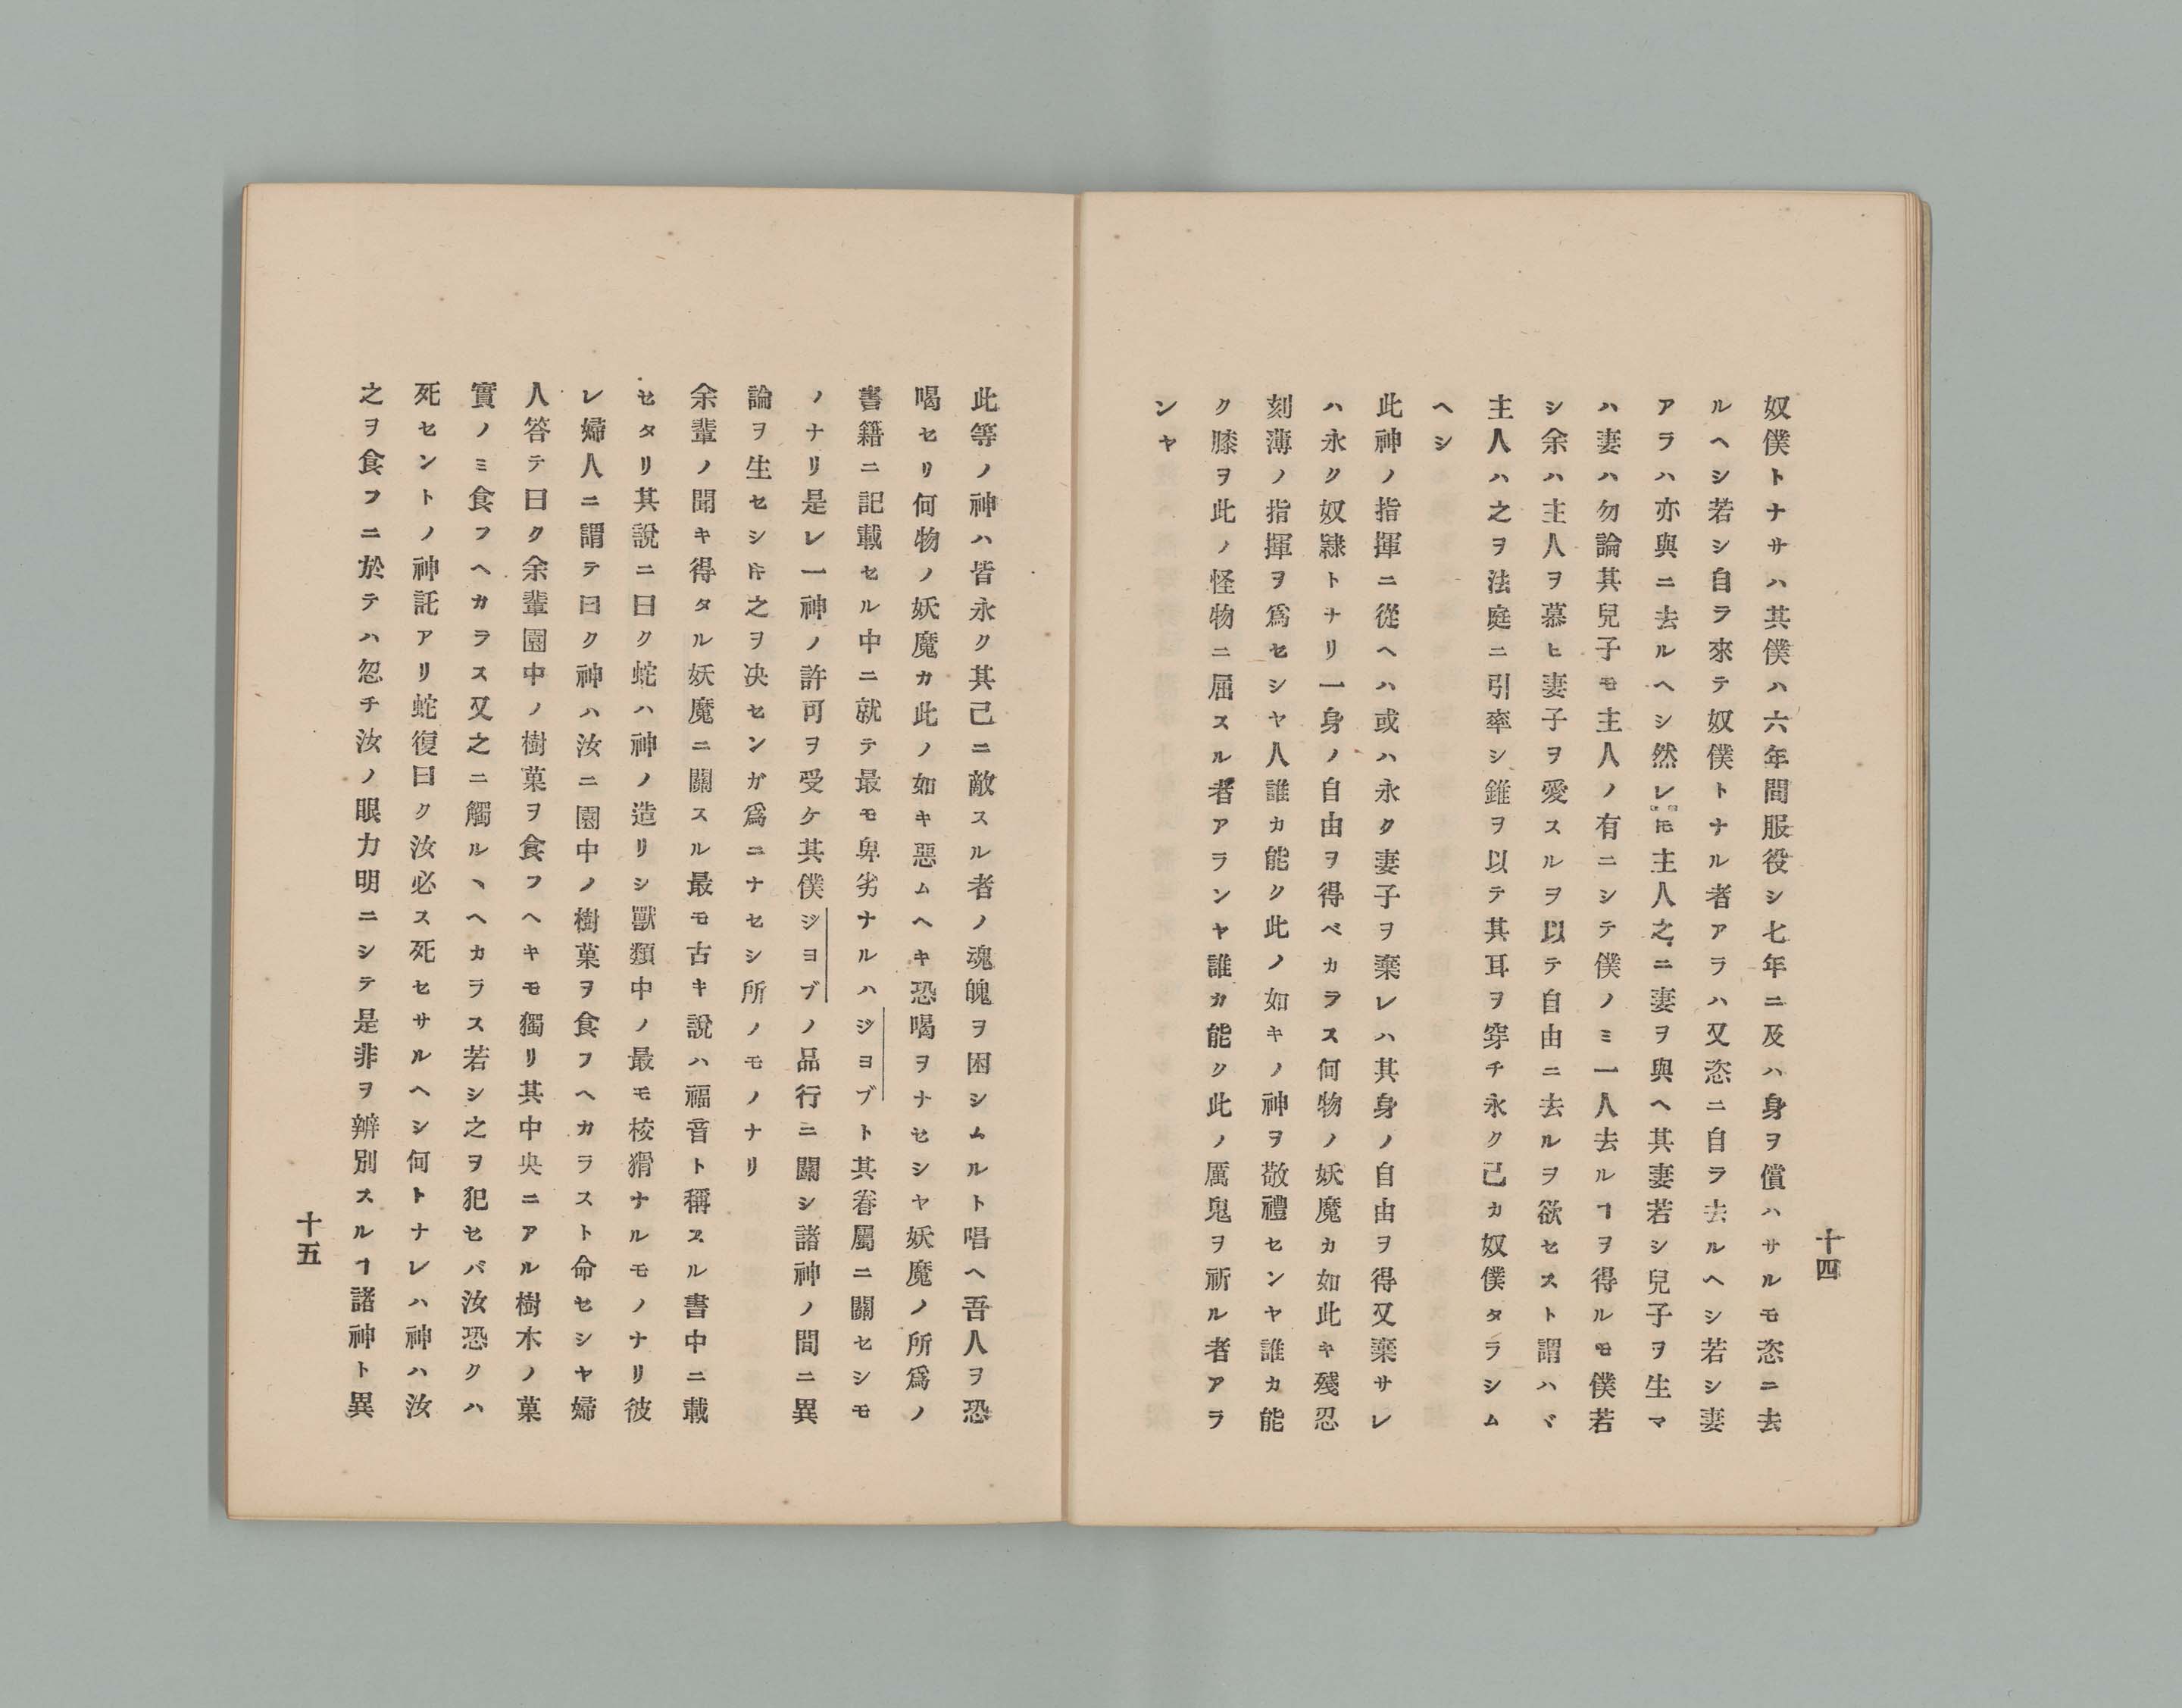 十四
奴僕トナサハ其僕ハ六年間服役シ七年ニ及ハ身ヲ償ハサルモ恣ニ去
ルヘシ若シ自ラ來テ奴僕トナル者アラハ又恣ニ自ラ去ルヘシ若シ妻
アラハ亦與ニ去ルヘシ然レ𪜈主人之ニ妻ヲ與ヘ其妻若シ兒子ヲ生マ
ハ妻ハ勿論其兒子モ主人ノ有ニシテ僕ノミ一人去ルヿヲ得ルモ僕若
シ余ハ主人ヲ慕ヒ妻子ヲ愛スルヲ以テ自由ニ去ルヲ欲セスト謂ハヾ
主人ハ之ヲ法庭ニ引率シ錐ヲ以テ其耳ヲ穿チ永ク己カ奴僕タラシム
ヘシ
此神ノ指揮ニ從ヘハ或ハ永ク妻子ヲ棄レハ其身ノ自由ヲ得又棄サレ
ハ永ク奴隷トナリ一身ノ自由ヲ得ベカラス何物ノ妖魔カ如此キ殘忍
刻薄ノ指揮ヲ爲セシヤ人誰カ能ク此ノ如キノ神ヲ敬禮センヤ誰カ能
ク膝ヲ此ノ怪物ニ屈スル者アランヤ誰カ能ク此ノ厲鬼ヲ祈ル者アラ
ンヤ
此等ノ神ハ皆永ク其己ニ敵スル者ノ魂魄ヲ困シムルト唱ヘ吾人ヲ恐
喝セリ何物ノ妖魔カ此ノ如キ惡ムヘキ恐喝ヲナセシヤ妖魔ノ所爲ノ
書籍ニ記載セル中ニ就テ最モ卑劣ナルハジヨブト其眷屬ニ關セシモ
ノナリ是レ一神ノ許可ヲ受ケ其僕ジヨブノ品行ニ關シ諸神ノ間ニ異
論ヲ生セシ𪜈之ヲ决センガ爲ニナセシ所ノモノナリ
余輩ノ聞キ得タル妖魔ニ關スル最モ古キ說ハ福音ト稱スル書中ニ載
セタリ其說ニ曰ク蛇ハ神ノ造リシ獸類中ノ最モ梭猾ナルモノナリ彼
レ婦人ニ謂テ曰ク神ハ汝ニ園中ノ樹菓ヲ食フヘカラスト命セシヤ婦
人答テ曰ク余輩園中ノ樹菓ヲ食フヘキモ獨リ其中央ニアル樹木ノ菓
實ノミ食フヘカラス又之ニ觸ルヽヘカラス若シ之ヲ犯セバ汝恐クハ
死セントノ神託アリ蛇復曰ク汝必ス死セサルヘシ何トナレハ神ハ汝
之ヲ食フニ於テハ忽チ汝ノ眼力明ニシテ是非ヲ辨別スルヿ諸神ト異
十五